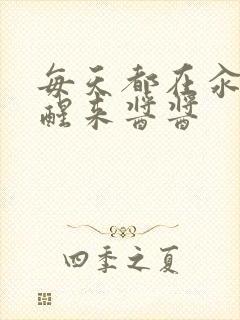 每天都在汆
醒来酱酱
四季之夏